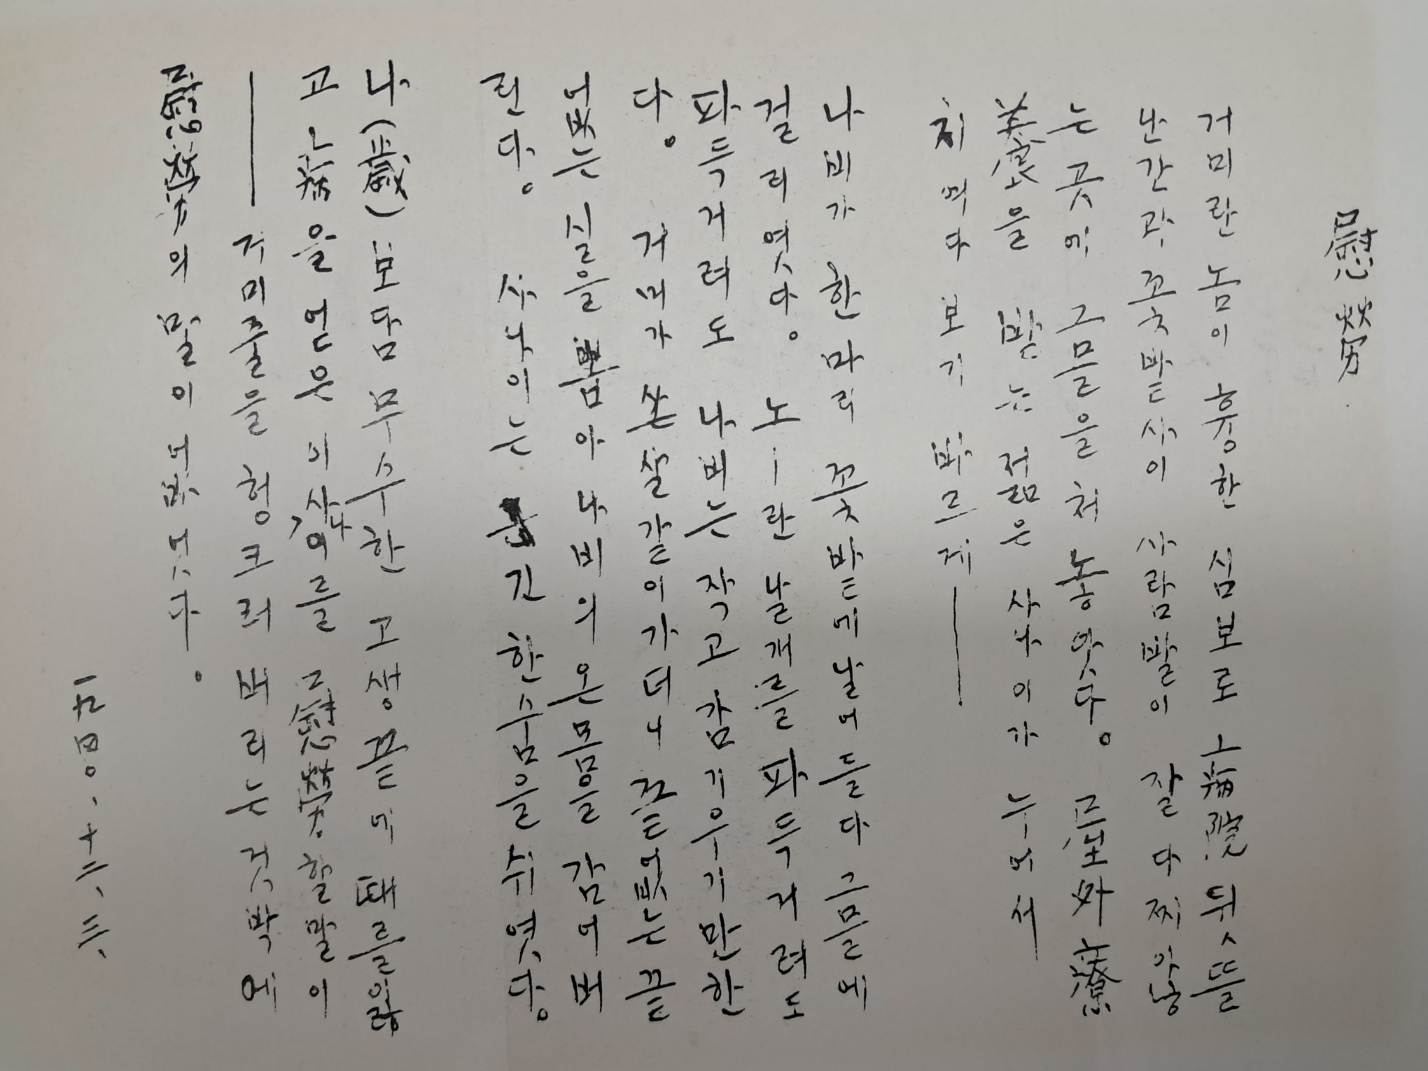 慰勞
거미란 놈이 흉한 심보로 病院 뒷뜰
난간과 꽃밭사이 사람발이 잘 다찌않
는 곳에 그믈을 처 놓앗다. 屋外療
養을 받는 젊은 사나이가 누어서
치여다 보기 바르게——
나비가 한마리 꽃밭에 날어들다 그믈에
걸리엿다. 노—란 날개를 파득거려도
파득거려도 나비는 작고 감기우기만한
다. 거미가 쏜살같이가더니 끝없는 끝
없는 실을 뽑아 나비의 온몸을 감어버
린다. 사나이는 긴 한숨을 쉬엿다.
나(歲)보담 무수한 고생끝에 때를잃
고 病을 얻은 이사나이를 慰勞할말이
——거미줄을 헝크러 버리는 것박에
慰勞의 말이 없엇다.
一九四〇、十二、三、